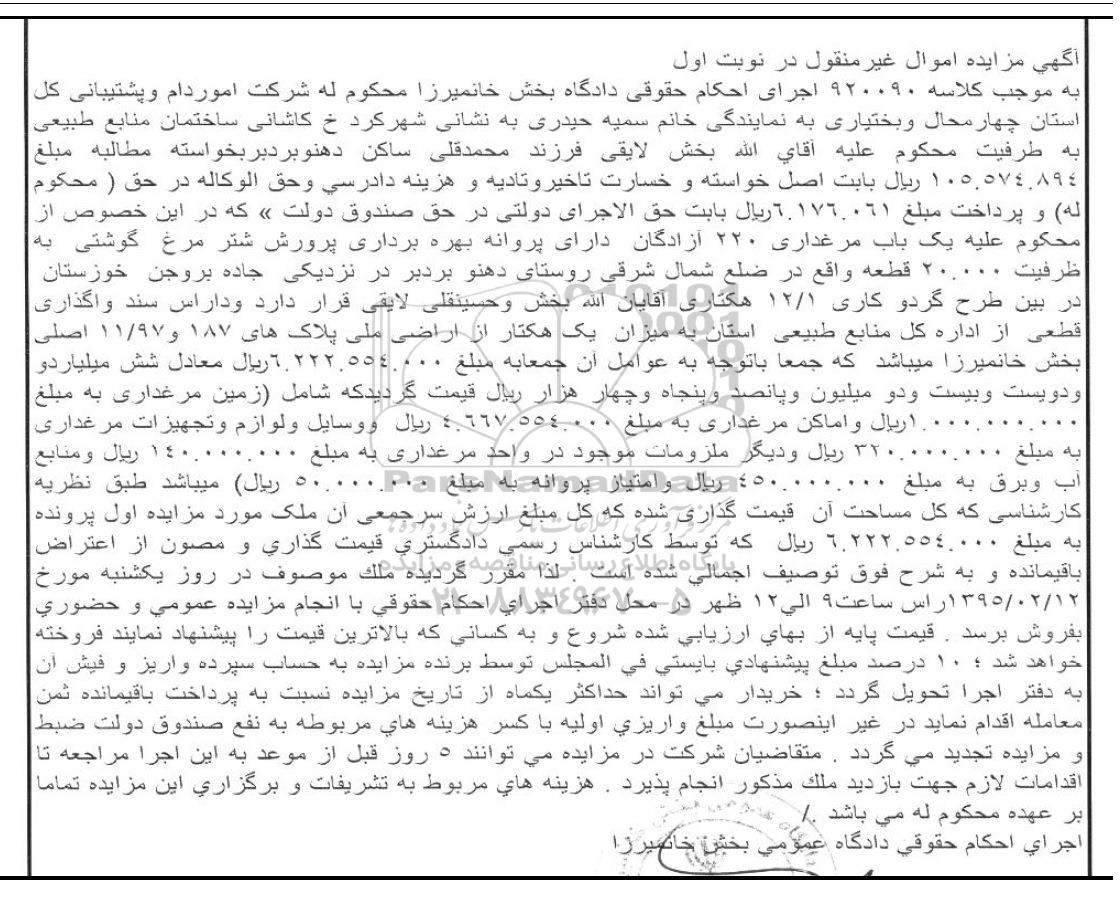 آگهي مزايده اموال غيرمنقول در نوبت اول
به موجب کلاسه ۹۲۰۰۹۰ اجرای احکام حقوقی دادگاه بخش خانمیرزا محکوم له شرکت اموردام وپشتیبانی کل
استان چهارمحال وبختیاری به نمایندگی خانم سمیه حیدری به نشانی شهرکرد خ کاشانی ساختمان منابع طبیعی
به طرفیت محکوم علیه آقاي الله بخش لایقی فرزند محمدقلی ساکن دهنوبردبربخواسته مطالبه مبلغ
۱۰۵.۵۷٤.۸۹٤ ریال بابت اصل خواسته و خسارت تاخیروتادیه و هزینه دادرسي وحق الوکاله در حق ( محکوم
له) و پرداخت مبلغ ٦.۱۷٦.۰٦۱ریال بابت حق الاجرای دولتی در حق صندوق دولت » که در این خصوص از
محکوم علیه یک باب مرغداری ۲۲۰ آزادگان دارای پروانه بهره برداری پرورش شتر مرغ گوشتی به
ظرفیت ۲۰.۰۰۰ قطعه واقع در ضلع شمال شرقی روستای دهنو بردبر در نزدیکی جاده بروجن خوزستان
در بین طرح گردو کاری ۱۲/۱ هکتاری آقایان الله بخش وحسینقلی لایقی قرار دارد وداراس سند واگذاری
قطعی از اداره کل منابع طبیعی استان به میزان یک هکتار از اراضی ملی پلاک های ۱۸۷ و۱۱/۹۷ اصلی
بخش خانمیرزا میباشد که جمعا باتوجه به عوامل آن جمعابه مبلغ ٦.۲۲۲.۵۵٤.۰۰۰ریال معادل شش میلیاردو
ودویست وبیست ودو میلیون وپانصد وپنجاه وچهار هزار ریال قیمت گردیدکه شامل (زمین مرغداری به مبلغ
۱.۰۰۰.۰۰۰.۰۰۰ریال واماکن مرغداری به مبلغ ٤.٦٦۷.۵۵٤.۰۰۰ ریال ووسایل ولوازم وتجهیزات مرغداری
به مبلغ ۳۲۰.۰۰۰.۰۰۰ ریال ودیگر ملزومات موجود در واحد مرغداری به مبلغ ۱٤۰.۰۰۰.۰۰۰ ریال ومنابع
آب وبرق به مبلغ ٤۵۰.۰۰۰.۰۰۰ ریال وامتیاز پروانه به مبلغ ۵۰.۰۰۰.۰۰۰ ریال) میباشد طبق نظریه
کارشناسی که کل مساحت آن قیمت گذاری شده که کل مبلغ ارزش سرجمعی آن ملک مورد مزایده اول پرونده
به مبلغ ٦.۲۲۲.۵۵٤.۰۰۰ ریال که توسط كارشناس رسمي دادگستري قيمت گذاري و مصون از اعتراض
باقيمانده و به شرح فوق توصيف اجمالي شده است . لذا مقرر گرديده ملك موصوف در روز یکشنبه مورخ
۱۳۹۵/۰۲/۱۲راس ساعت۹ الي۱۲ ظهر در محل دفتر اجراي احكام حقوقي با انجام مزايده عمومي و حضوري
بفروش برسد . قيمت پايه از بهاي ارزيابي شده شروع و به كساني كه بالاترين قيمت را پيشنهاد نمايند فروخته
خواهد شد ؛ ۱۰ درصد مبلغ پيشنهادي بايستي في المجلس توسط برنده مزايده به حساب سپرده واريز و فيش آن
به دفتر اجرا تحويل گردد ؛ خريدار مي تواند حداكثر يكماه از تاريخ مزايده نسبت به پرداخت باقيمانده ثمن
معامله اقدام نمايد در غير اينصورت مبلغ واريزي اوليه با كسر هزينه هاي مربوطه به نفع صندوق دولت ضبط
و مزايده تجديد مي گردد . متقاضيان شركت در مزايده مي توانند ۵ روز قبل از موعد به اين اجرا مراجعه تا
اقدامات لازم جهت بازديد ملك مذكور انجام پذيرد . هزينه هاي مربوط به تشريفات و برگزاري اين مزايده تماما
بر عهده محكوم له مي باشد ./
اجراي احكام حقوقي دادگاه عمومي بخش خانميرزا
ParsNamadData
پایگاه اطلاع رسانی مناقصه و مزایده
۰۲۱-۸۸۳٤۹٦۷۰-۵